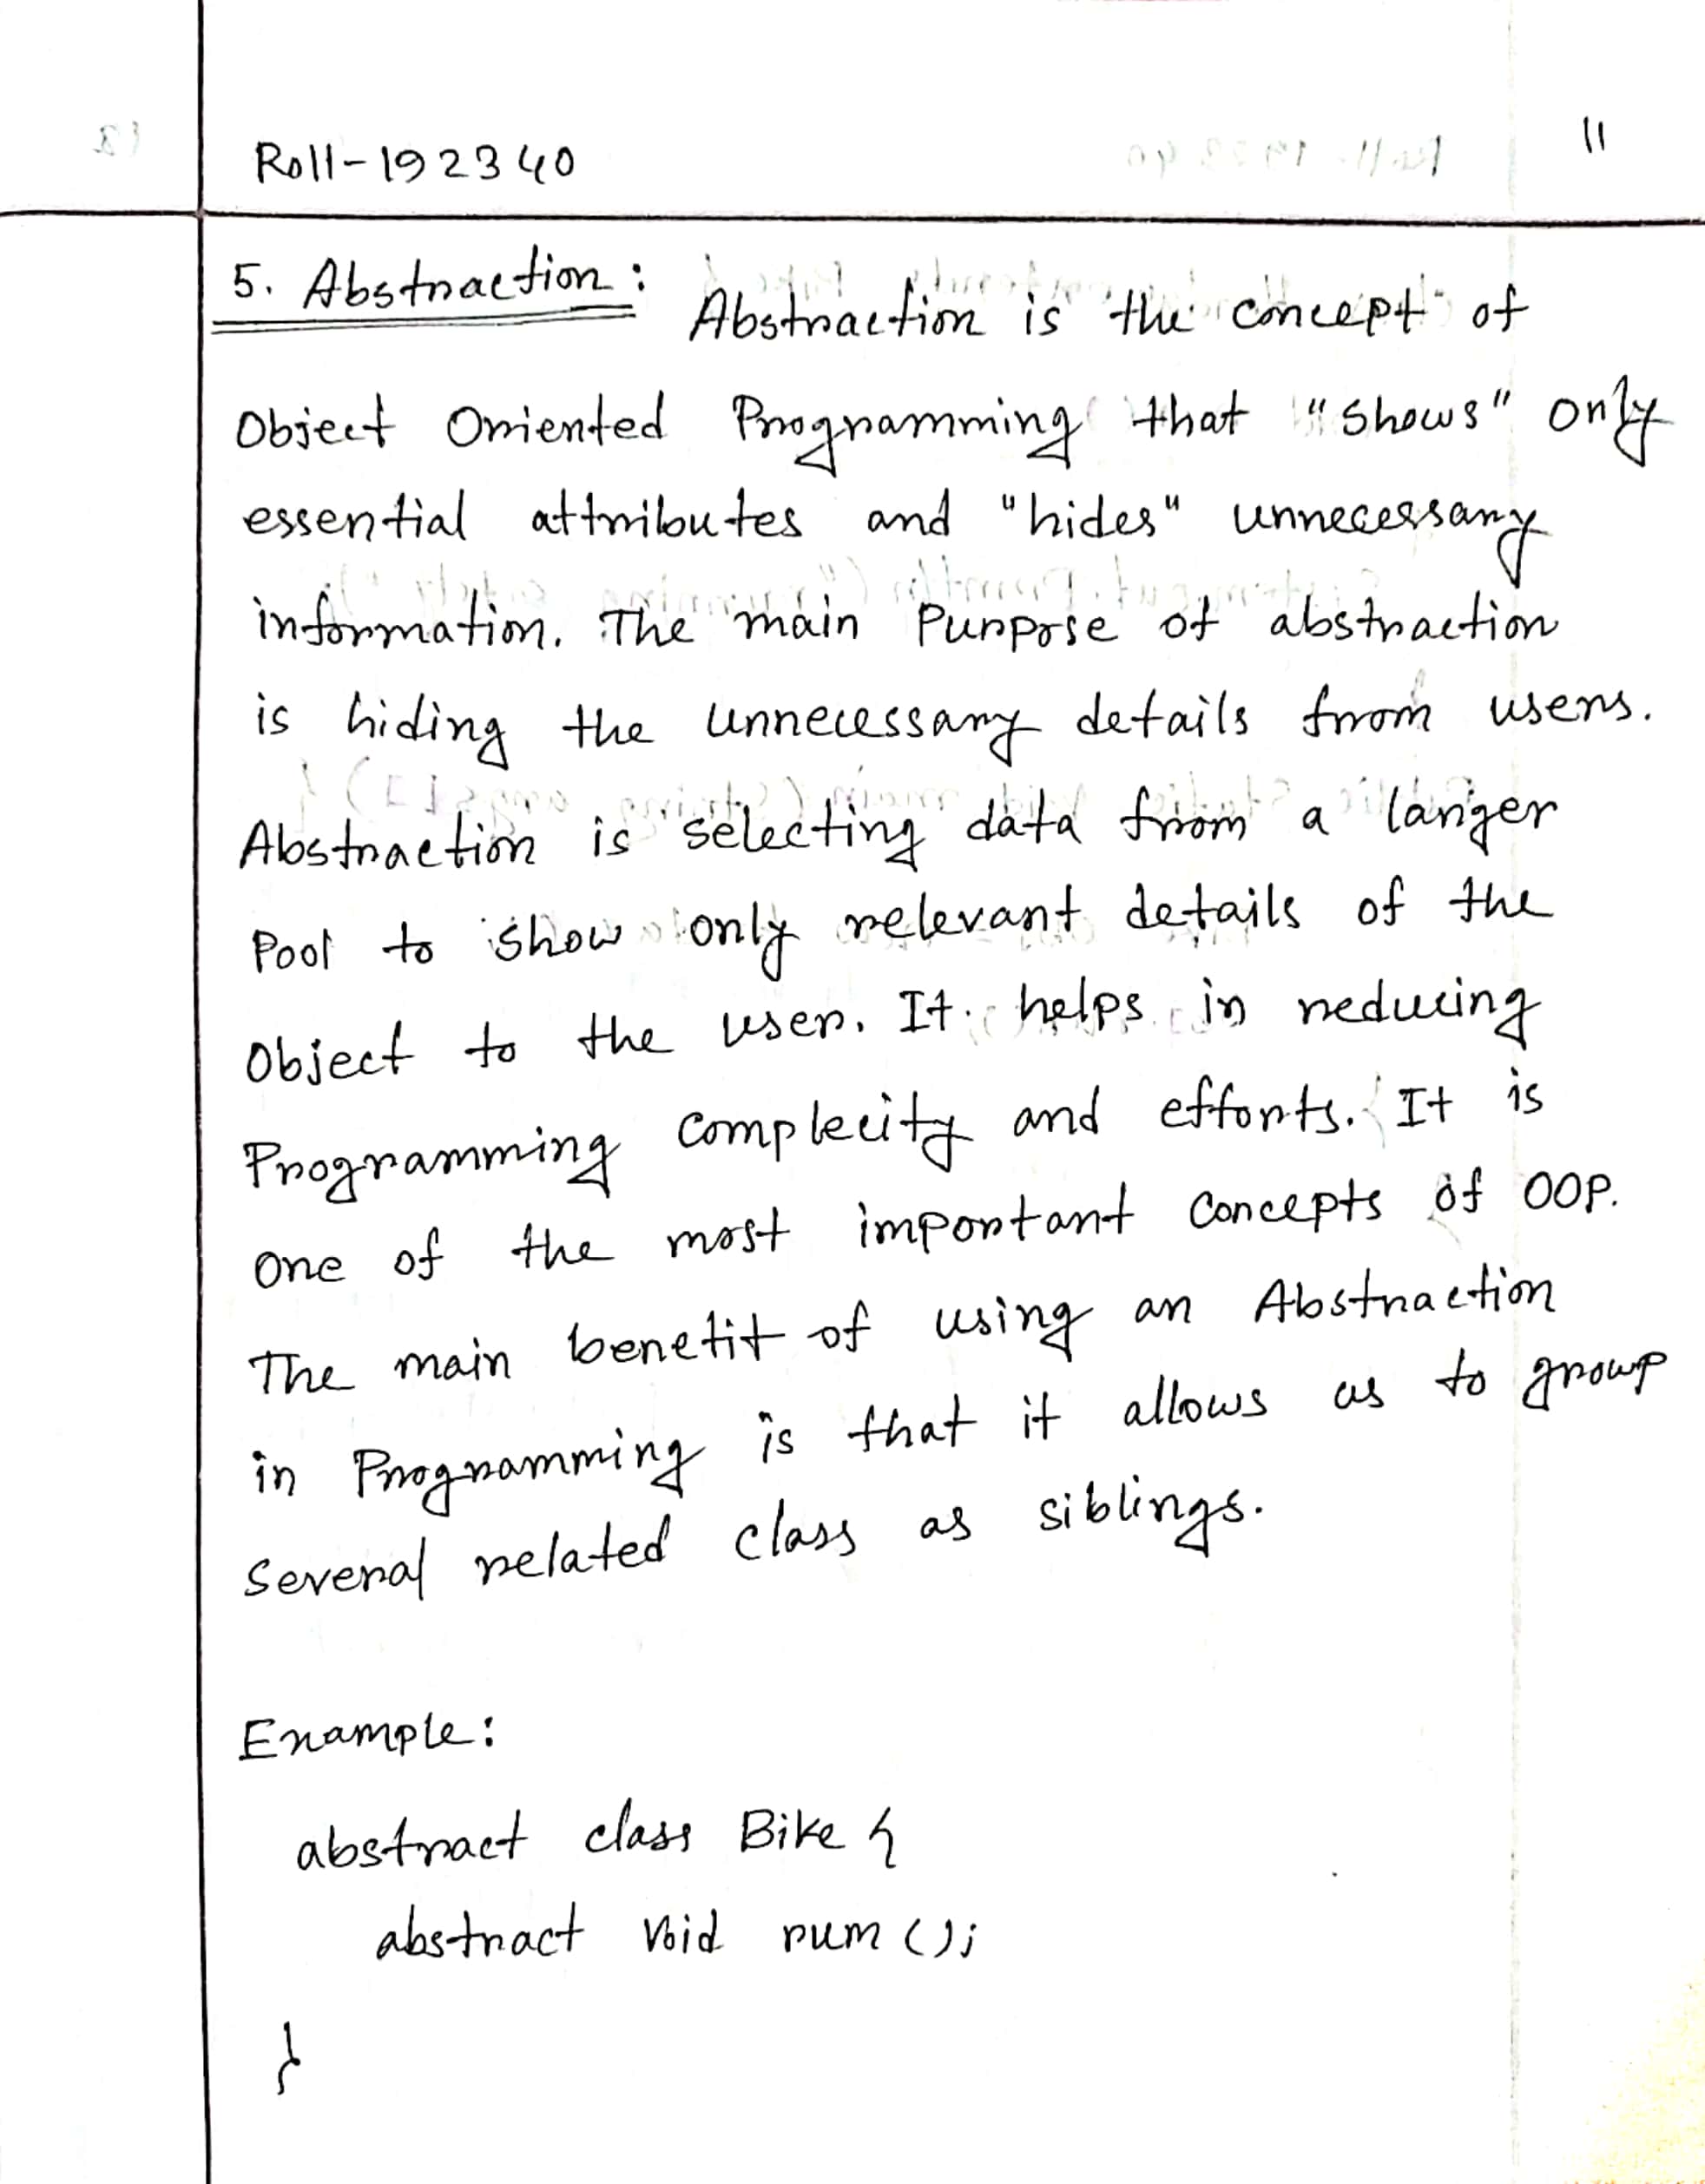 Roll-192340
11
5. Abstraction: Abstraction is the concept of
Object Oriented Programming that "shows" only
essential attributes and "hides" unnecessary
information. The main Purpose of abstraction
is hiding the unnecessary details from users.
Abstraction is selecting data from a larger
Pool to show only relevant details of the
Object to the user. It helps in reducing
Programming complecity and efforts. It is
one of the most important concepts of OOP.
The main benefit of using an Abstraction
in Programming is that it allows us to group
several related class as siblings.
Example:
abstract class Bike {
abstract void rum ();
}